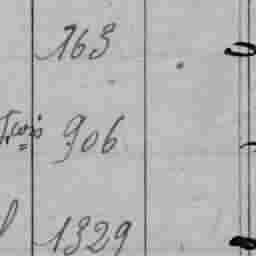 163
906
1329